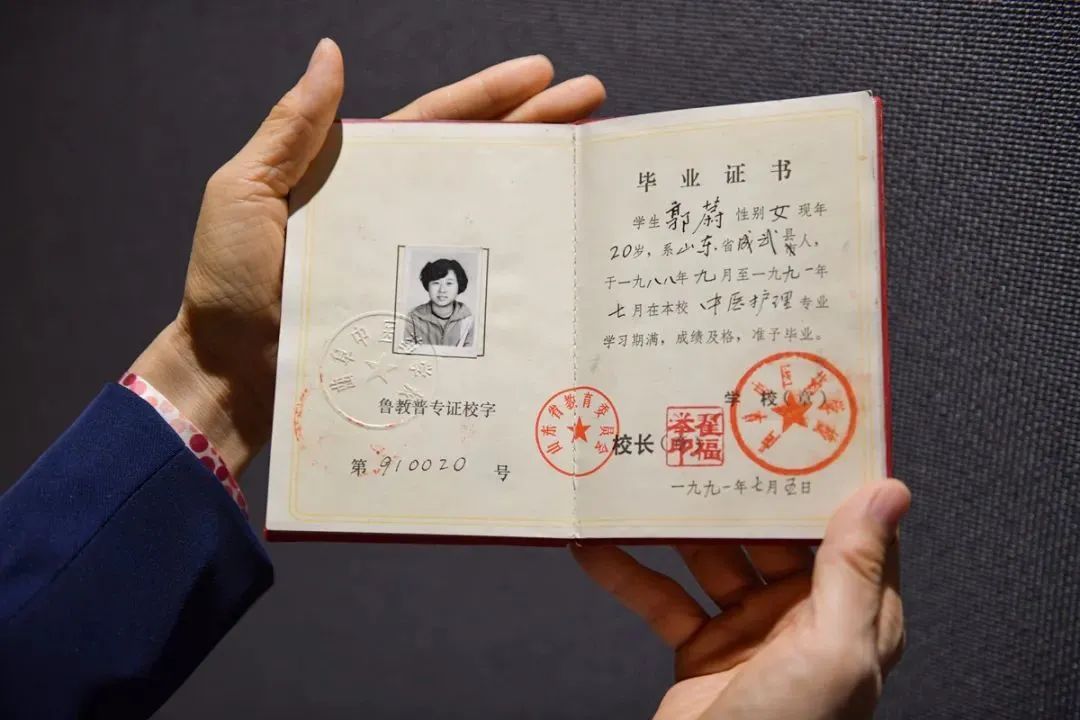 鲁教普专证校字
第910020号
山东省教育委员会
毕业证书
学生郭蔚性别女现年
20岁，系山东省成武县人，
于一九八八年九月至一九九一年
七月在本校中医护理专业
学习期满，成绩及格，准予毕业。
学校(章)
校长
翟福举印
一九九一年七月五日